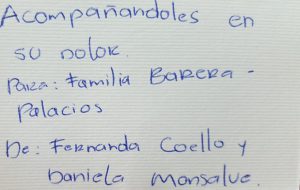 Acompañandoles en
su Dolor.
Para: Familia Barera -
Palacios
De: Fernanda Coello y
Daniela Monsalve.